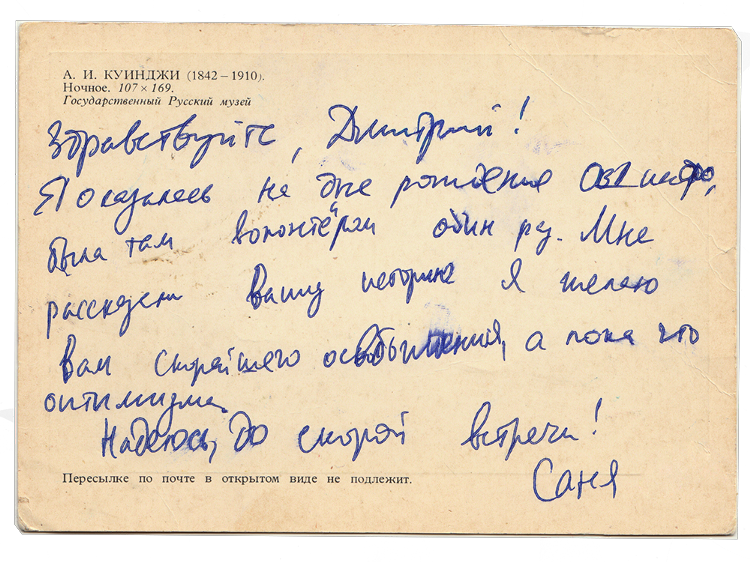 А. И. КУИНДЖИ (1842–1910).
Ночное. 107 × 169.
Государственный Русский музей
Здравствуйте, Дмитрий!
Я оказалась на дне рождения ОВД инфо,
была там волонтёром один раз. Мне
рассказали Вашу историю Я желаю
Вам скорейшего освобождения, а пока что
оптимизма.
Надеюсь, до скорой встречи!
Саня
Пересылке по почте в открытом виде не подлежит.